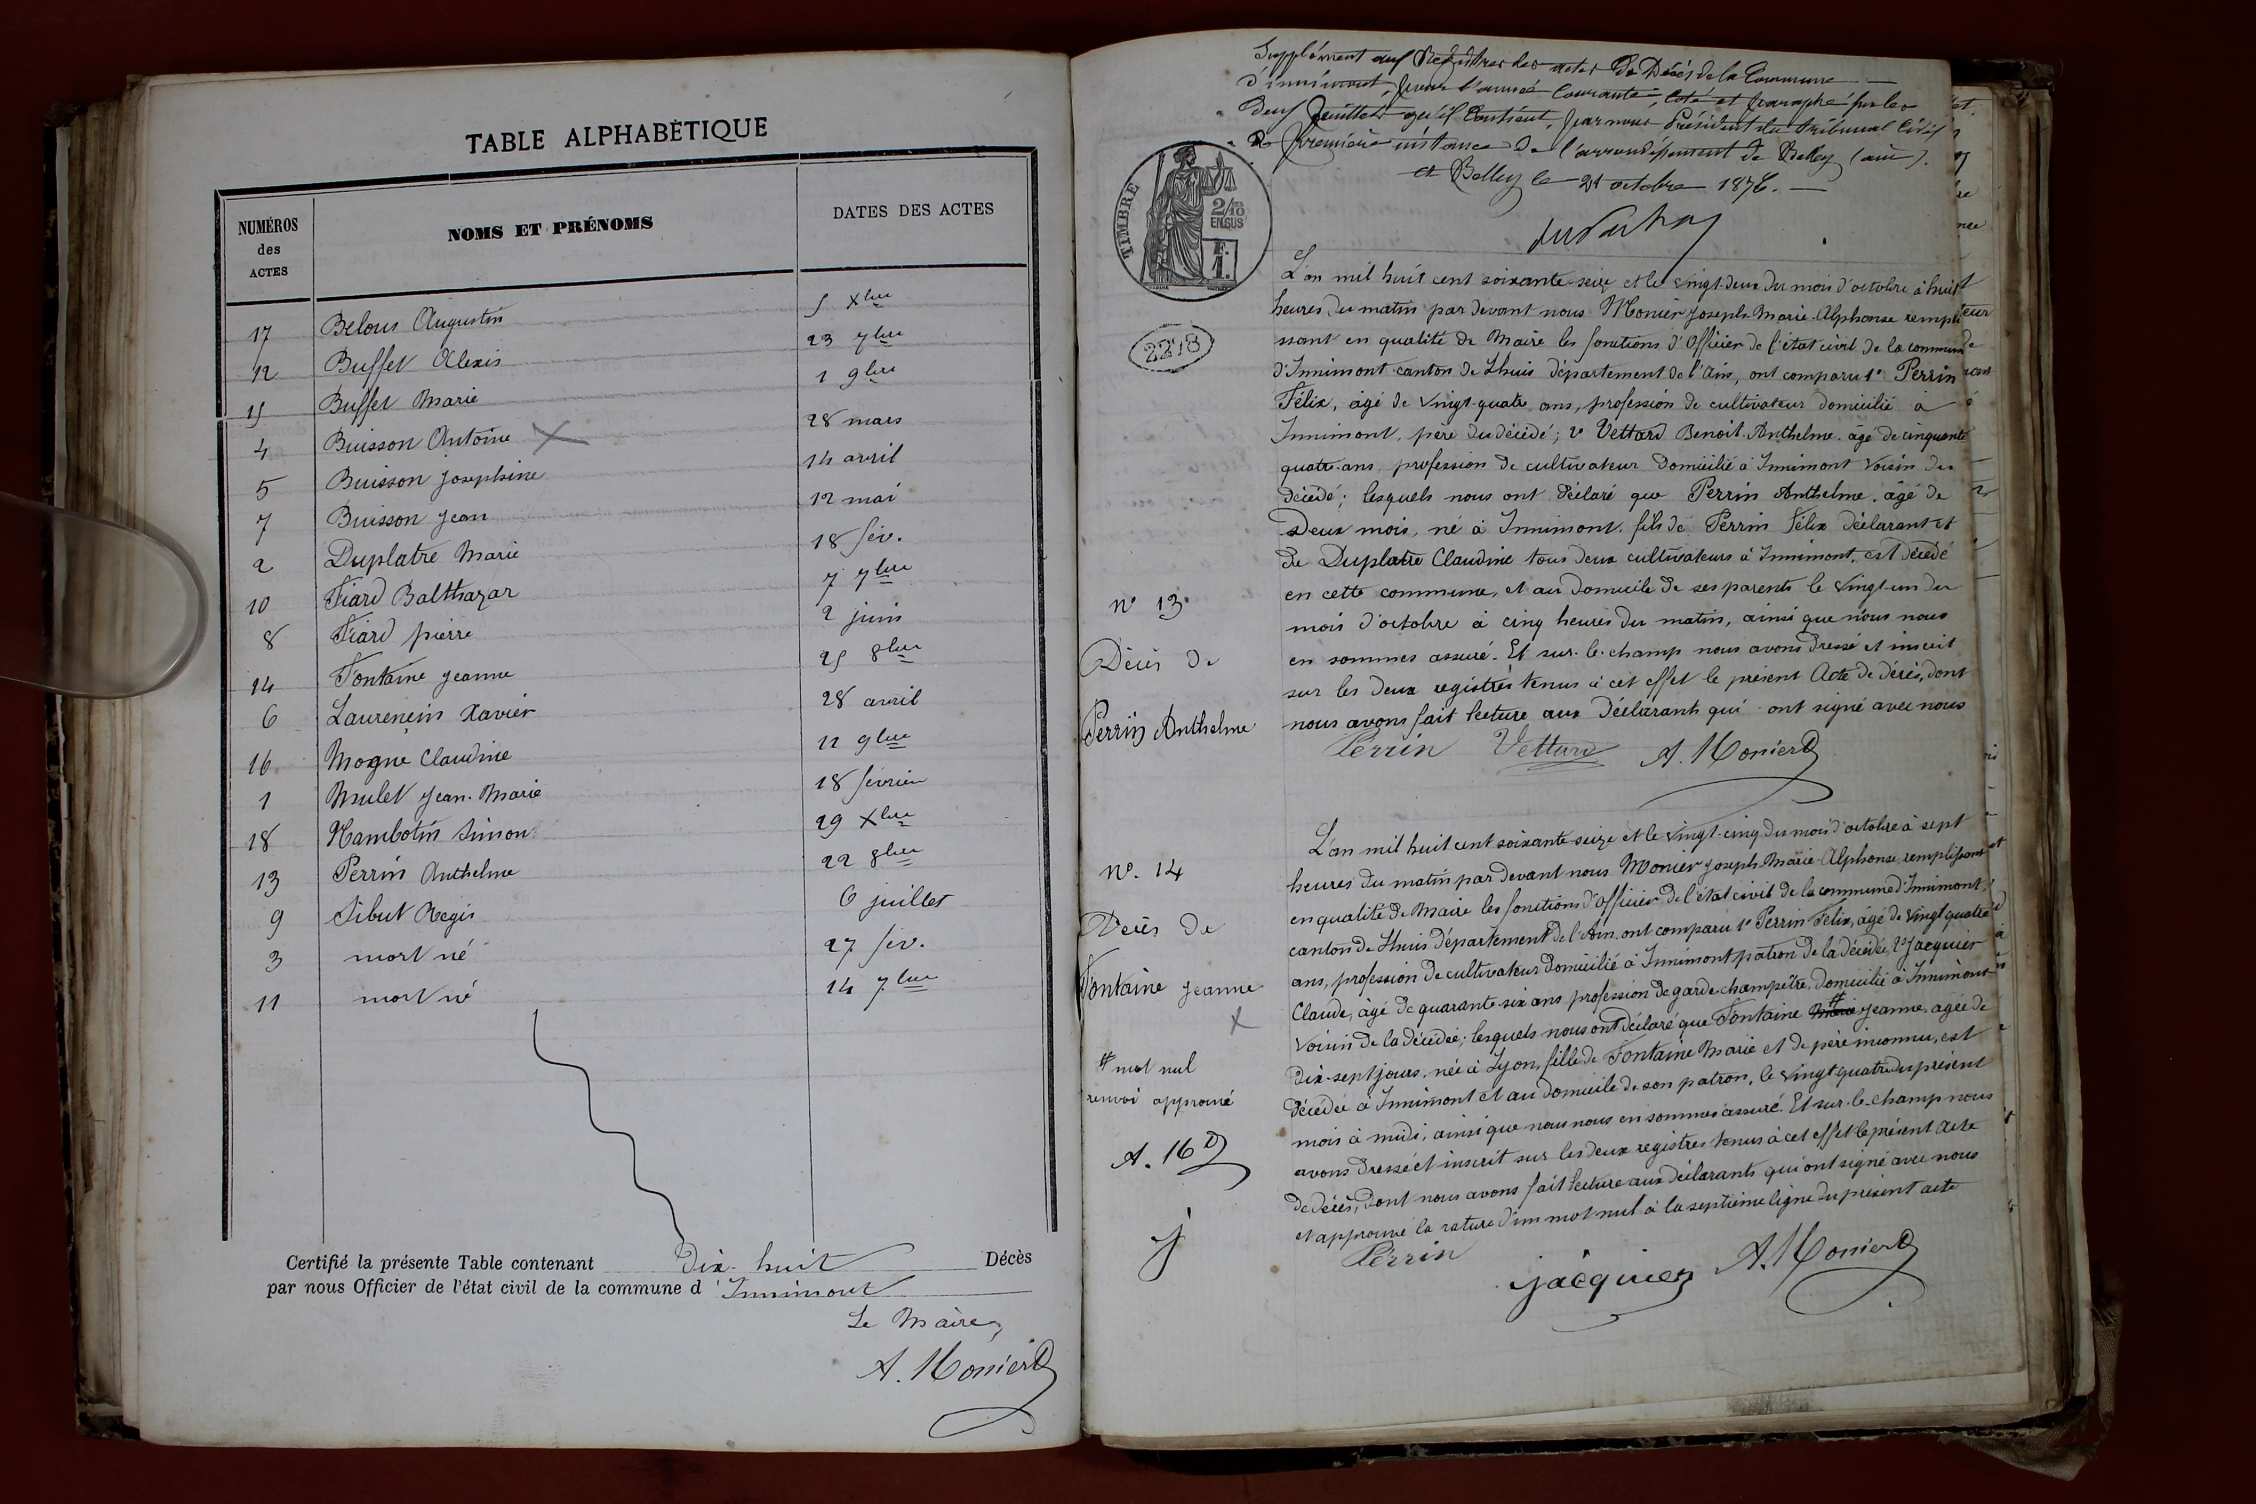 TABLE ALPHABÈTIQUE
NUMÉROS des ACTES NOMS ET PRÉNOMS DATES DES ACTES
17 Belous Augustin 5 Xbre
12 Buffet Alexis 23 7bre
15 Buffet Marie 1 9bre
4 Buisson Antoine 28 mars
5 Buisson Josephine 14 avril
7 Buisson Jean 12 mai
2 Duplatre Marie 18 fév.
10 Fiard Balthazar 7 7bre
8 Fiard pierre 2 juin
14 Fontaine Jeanne 25 8bre
6 Laurencin Xavier 28 avril
16 Mogne Claudine 12 9bre
1 Mulet Jean-Marie 18 février
18 Nambotin Simon 29 Xbre
13 Perrin Anthelme 22 8bre
9 Sibut Regis 6 juillet
3 mort né 27 fév.
11 mort né 14 7bre
Certifié la présente Table contenant Dix-huit Décès
par nous Officier de l'état civil de la commune d'Innimont
Le Maire,
A. Monier
Supplément aux Registres des actes de Décès de la Commune
d'innimont, pour l'année Courante, Coté et paraphé sur les
deux feuillets qu'il Contient, par nous Président du tribunal Civil
de première instance de l'arrondissement de Belley (ain).
et Belley le 21 octobre 1876.
TIMBRE
2/10 EN SUS
F. 1.
2218
L'an mil huit cent soixante-seize et le vingt-deux du mois d'octobre à huit
heures du matin par devant nous Monier Joseph-Marie-Alphonse rempli
ssant en qualité de Maire les fonctions d'Officier de l'état civil de la commune
d'Innimont canton de Lhuis département de l'Ain, ont comparu 1° Perrin
Félix, âgé de vingt-quatre ans, profession de cultivateur domicilié à
Innimont, père du décédé; 2° Vettard Benoit-Anthelme, âgé de cinquante
quatre ans, profession de cultivateur domicilié à Innimont voisin du
décédé; lesquels nous ont déclaré que Perrin Anthelme, âgé de
Deux mois, né à Innimont, fils de Perrin Félix déclarant et
de Duplatre Claudine tous deux cultivateurs à Innimont, est décédé
n° 13.
en cette commune, et au domicile de ses parents le vingt-un du
mois d'octobre à cinq heures du matin, ainsi que nous nous
Décès de
en sommes assuré. Et sur-le-champ nous avons dressé et inscrit
sur les deux registres tenus à cet effet le présent Acte de décès, dont
Perrin Anthelme
nous avons fait lecture aux déclarants qui ont signé avec nous
Perrin Vettard A. Monier
L'an mil huit cent soixante-seize et le vingt-cinq du mois d'octobre à sept
n°. 14
heures du matin par devant nous Monier Joseph-Marie-Alphonse remplissant
en qualité de Maire les fonctions d'officier de l'état civil de la commune d'Innimont,
Décès de
canton de Lhuis département de l'Ain, ont comparu 1° Perrin Felix, âgé de vingt quatre
ans, profession de cultivateur domicilié à Innimont patron de la décédée, 2° Jacquier
Fontaine Jeanne
Claude, âgé de quarante-six ans profession de garde-champêtre, domicilié à Innimont
voisin de la décédée; lesquels nous ont déclaré que Fontaine Marie # Jeanne, agée de
# mot nul
dix-sept jours, née à Lyon, fille de Fontaine Marie et de père inconnu, est
renvoi approuvé
décédée à Innimont et au domicile de son patron, le vingt quatre du présent
mois à midi, ainsi que nous nous en sommes assuré. Et sur-le-champ nous
A. M
avons dressé et inscrit sur les deux registres tenus à cet effet le présent acte
de décès, dont nous avons fait lecture aux déclarants qui ont signé avec nous
j
et approuvé la rature d'un mot nul à la septième ligne du présent acte
Perrin jacquier A. Monier